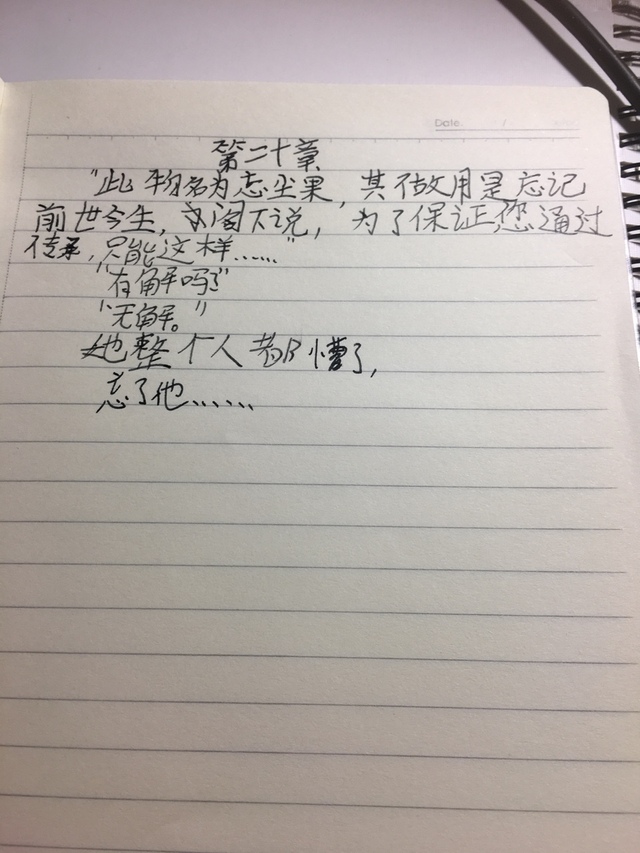 Date / /
第二十章
"此物名为忘尘果,其作用是忘记
前世今生,阁下说,为了保证您通过
传承,只能这样……"
"有解吗?"
"无解。"
她整个人都懵了,
忘了他……